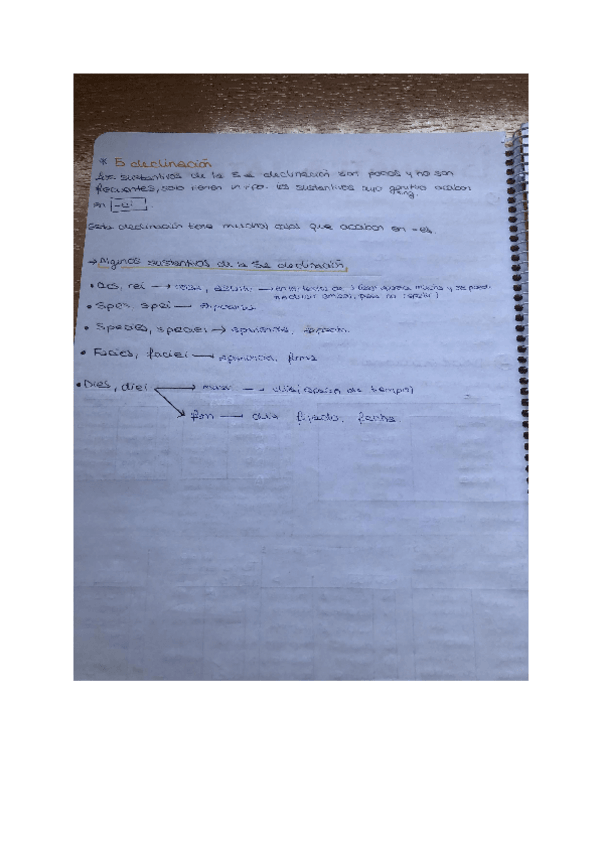 * 5 declinación
Los sustantivos de la 5.ª declinación son pocos y no son
frecuentes, solo tienen un tipo. Los sustantivos cuyo genitivo acaban
sing.
en -ei.
Esta declinación tiene muchos que acaban en -es.
→ Algunos sustantivos de la 5ª declinación
• Res, rei → cosa, asunto → en los textos de mucho y se puede
traducir pero no repetir)
• Spes, spei → esperanza
• Species, speciei → apariencia,
• Facies, faciei → apariencia, forma
• Dies, diei → masc → día (espacio de tiempo)
fem → día fijado, fecha